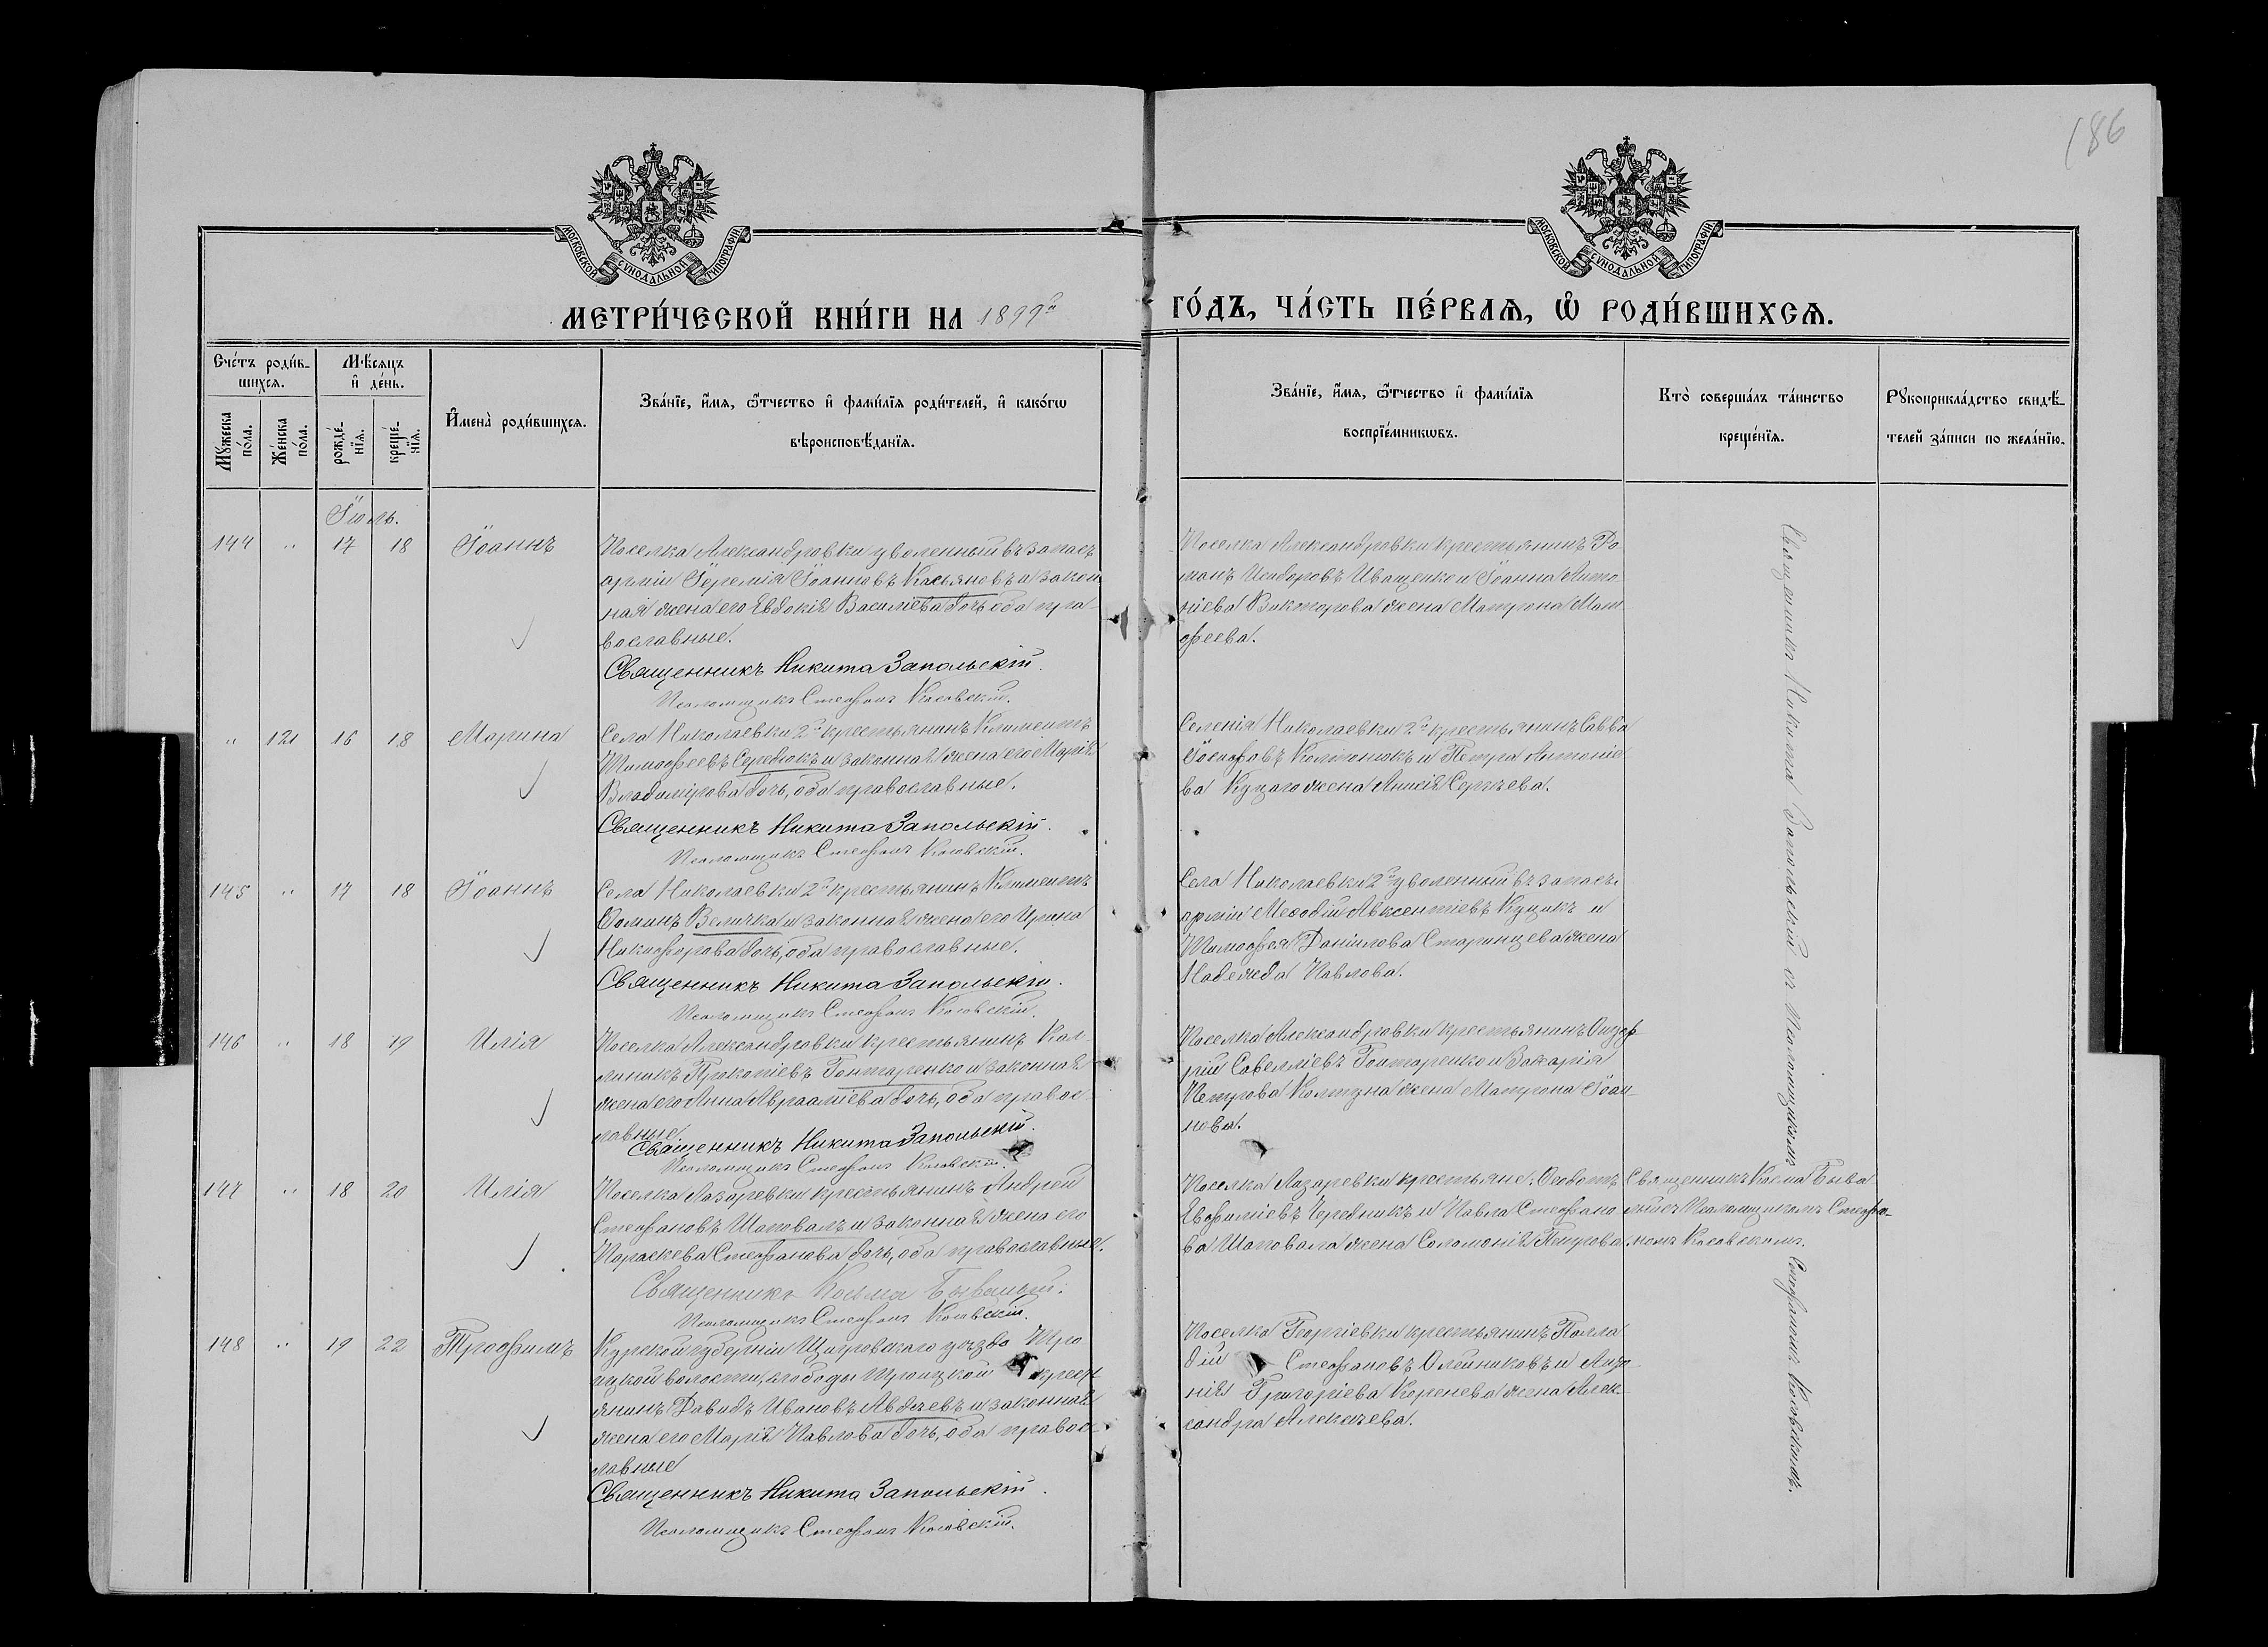 186
МОСКОВСКОЙ СУНОДАЛЬНОЙ ТИПОГРАФІИ
МОСКОВСКОЙ СУНОДАЛЬНОЙ ТИПОГРАФІИ
МЕТРИ́ЧЕСКОЙ КНИ́ГИ НА 1899й ГО́ДЪ, ЧА́СТЬ ПЕ́РВАѦ, Ѡ҆ РОДИ́ВШИХСѦ.
Сче́тъ роди́в-
шихсѧ.
Мꙋ́жеска по́ла.
Же́нска по́ла.
Мѣ́сѧцъ
и҆ де́нь.
рожде́-
нїѧ.
креще́-
нїѧ.
И҆мена̀ роди́вшихсѧ.
Зва́нїе, и҆́мѧ, ѻ҆́тчество и҆ фами́лїѧ роди́телей, и҆ како́гѡ
вѣроисповѣ́данїѧ.
Зва́нїе, и҆́мѧ, ѻ҆́тчество и҆ фами́лїѧ
воспрїе́мникѡвъ.
Кто̀ соверша́лъ та́инство
креще́нїѧ.
Рꙋкоприкла́дство свидѣ́-
телей за́писи по жела́нїю.
Іюль.
144 " 17 18 Іоаннъ
Поселка Александровки уволенный въ запасъ
арміи Іеремія Іоанновъ Касьяновъ и закон
ная жена его Евдокія Василіева дочь, оба пра-
вославные.
Священникъ Никита Запольскій.
Псаломщикъ Стефанъ Косовскій.
Поселка Александровки крестьянинъ Ро
манъ Исидоровъ Иващенко и Іоанна Анто-
ніева Викторова жена Матрона Мат-
феева.
" 121 16 18 Марина
Села Николаевки 2й крестьянинъ Климентъ
Тимофеевъ Середюкъ и законная жена его Марія
Владимірова дочь, оба православные.
Священникъ Никита Запольскій.
Псаломщикъ Стефанъ Косовскій.
Селенія Николаевки 2й крестьянинъ Савва
Іосифовъ Колтонюкъ и Петра Антоніе
ва Куцаго жена Анисія Сергѣева.
145 " 17 18 Іоаннъ
Села Николаевки 2й крестьянинъ Климентъ
Фоминъ Величка и законная жена его Ирина
Никифорова дочь, оба православные.
Священникъ Никита Запольскій.
Псаломщикъ Стефанъ Косовскій.
Села Николаевки 2й уволенный въ запасъ
арміи Меѳодій Авксентіевъ Куцикъ и
Тимофея Даніилова Старинцева жена
Надежда Павлова.
146 " 18 19 Илія
Поселка Александровки крестьянинъ Кал-
линикъ Прокопіевъ Гонтаренко и законная
жена его Анна Авраамiева дочь, оба правос-
лавные.
Священникъ Никита Запольскій.
Псаломщикъ Стефанъ Косовскій.
Поселка Александровки крестьянинъ
Савелліевъ Гонтаренко и Захарія
Петрова Колтуна жена Матрона Іоан-
нова.
Священникъ Никита Запольскій съ Псаломщикомъ Стефаномъ Косовскимъ.
147 " 18 20 Илія
Поселка Лазаревки крестьянинъ Андрей
Стефановъ Шаповалъ и законная жена его
Параскева Стефанова дочь, оба православные.
Священникъ Косма Бывалый.
Псаломщикъ Стефанъ Косовскій.
Поселка Лазаревки крестьяне: Ѳеодотъ
Евфиміевъ Чередникъ и Павла Стефано
ва Шаповала жена Соломонія Петрова.
Священникъ Косма Быва-
лый съ Псаломщикомъ Стефа-
номъ Косовскимъ.
148 " 19 22 Трофимъ
Курской губерніи Щигровскаго уѣзда Тро
ицкой волости, слободы Троицкой крест
янинъ Давидъ Ивановъ Авдѣевъ и законная
жена его Марія Павлова дочь, оба правос-
лавные
Священникъ Никита Запольскій.
Псаломщикъ Стефанъ Косовскій.
Поселка Георгіевки крестьянинъ Палла
дій Стефановъ Олейниковъ и
Григоріева Коренева жена Алек-
сандра Алексѣева.